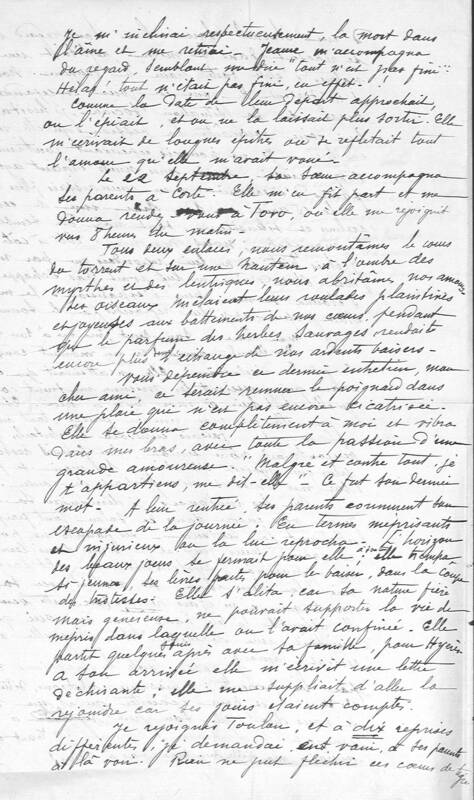 Je m'inclinai respectueusement, la mort dans
l'âme et me retirai - Jeanne m'accompagna
du regard semblant me dire "tout n'est pas fini"
Helas! tout n'était pas fini, en effet!
Comme la date de leur départ approchait,
on l'épiait, et on ne la laissait plus sortir. Elle
m'écrivait de longues épitres où se reflétait tout
l'amour qu'elle m'avait voué.
Le 22 Septembre, sa sœur accompagna
ses parents à Corte. Elle m'en fit part et me
donna rendez-vous à Toro, où elle me rejoignit
vers 8 heures du matin.
Tous deux enlacés, nous remontâmes le cours
du torrent et sur une hauteur, à l'ombre des
myrthes et des lentisques, nous abritâmes nos amours
Les oiseaux mêlaient leurs roulades plaintives
et joyeuses aux battements de nos cœurs, pendant
que le parfum des herbes sauvages rendait
encore plus l'échange de nos ardents baisers -
Vous dépeindre ce dernier entretien, mon
cher ami, ce serait remuer le poignard dans
une plaie qui n'est pas encore cicatrisée
Elle se donna complètement à moi et vibra
dans mes bras, avec toute la passion d'une
grande amoureuse. "Malgré et contre tout je
t'appartiens, me dit-elle" - Ce fut son dernier
mot - A leur rentrée, ses parents connurent son
escapade de la journée; En termes méprisants
et injurieux on la lui reprocha - L'horizon
des beaux jours, se fermait pour elle; elle trempa
si jeune, ses lèvres faites pour le baiser, dans la coupe
des tristesses - Elle s'alita, car sa nature fière
mais généreuse, ne pouvait supporter la vie de
mépris dans laquelle on l'avait confinée. Elle
partit quelques jours après avec sa famille, pour Hyères
à son arrivée elle m'écrivit une lettre
déchirante; elle me suppliait d'aller la
rejoindre car ses jours étaient comptés.
Je rejoignis Toulon, et à dix reprises
différentes, je demandai en vain, à ses parents
à la voir. Rien ne put fléchir ces cœurs de